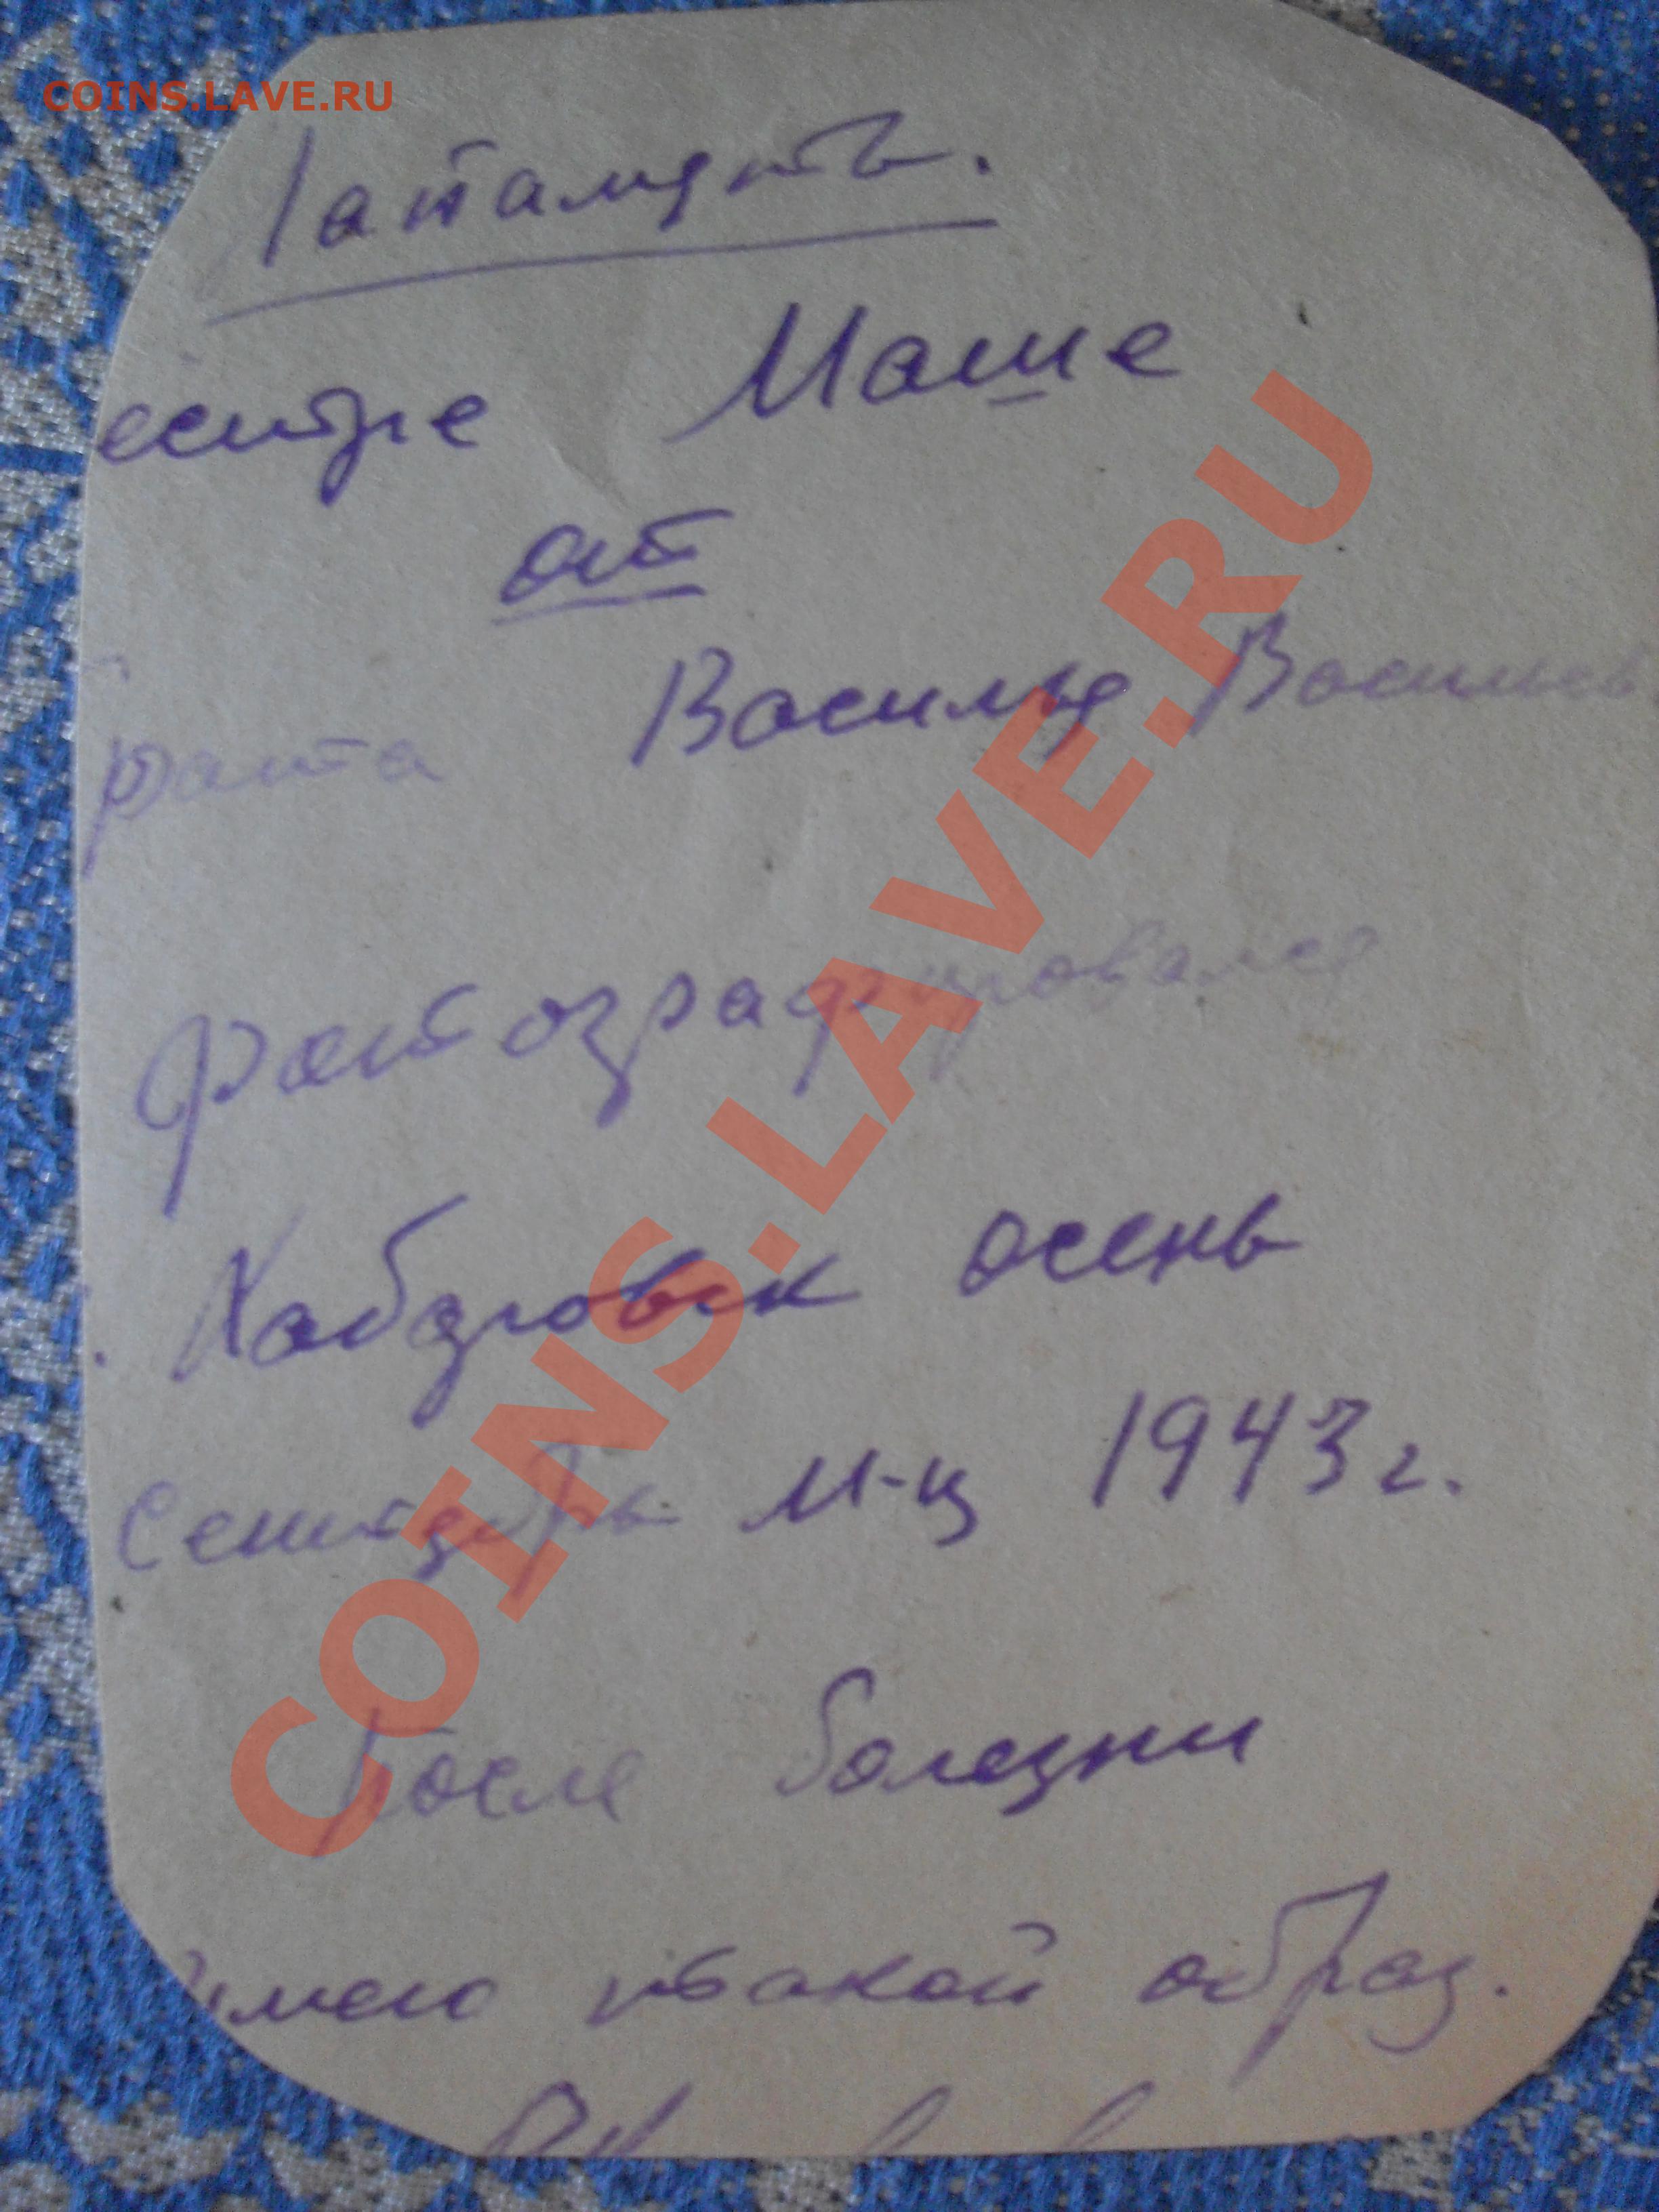 COINS.LAVE.RU
Натамять.
естре Маше
от
брата Василья Васильев
Фотографировался
. Хабаровск осень
Сентябрь м-ц 1943 г.
После болезни
имею такой образ.
COINS.LAVE.RU